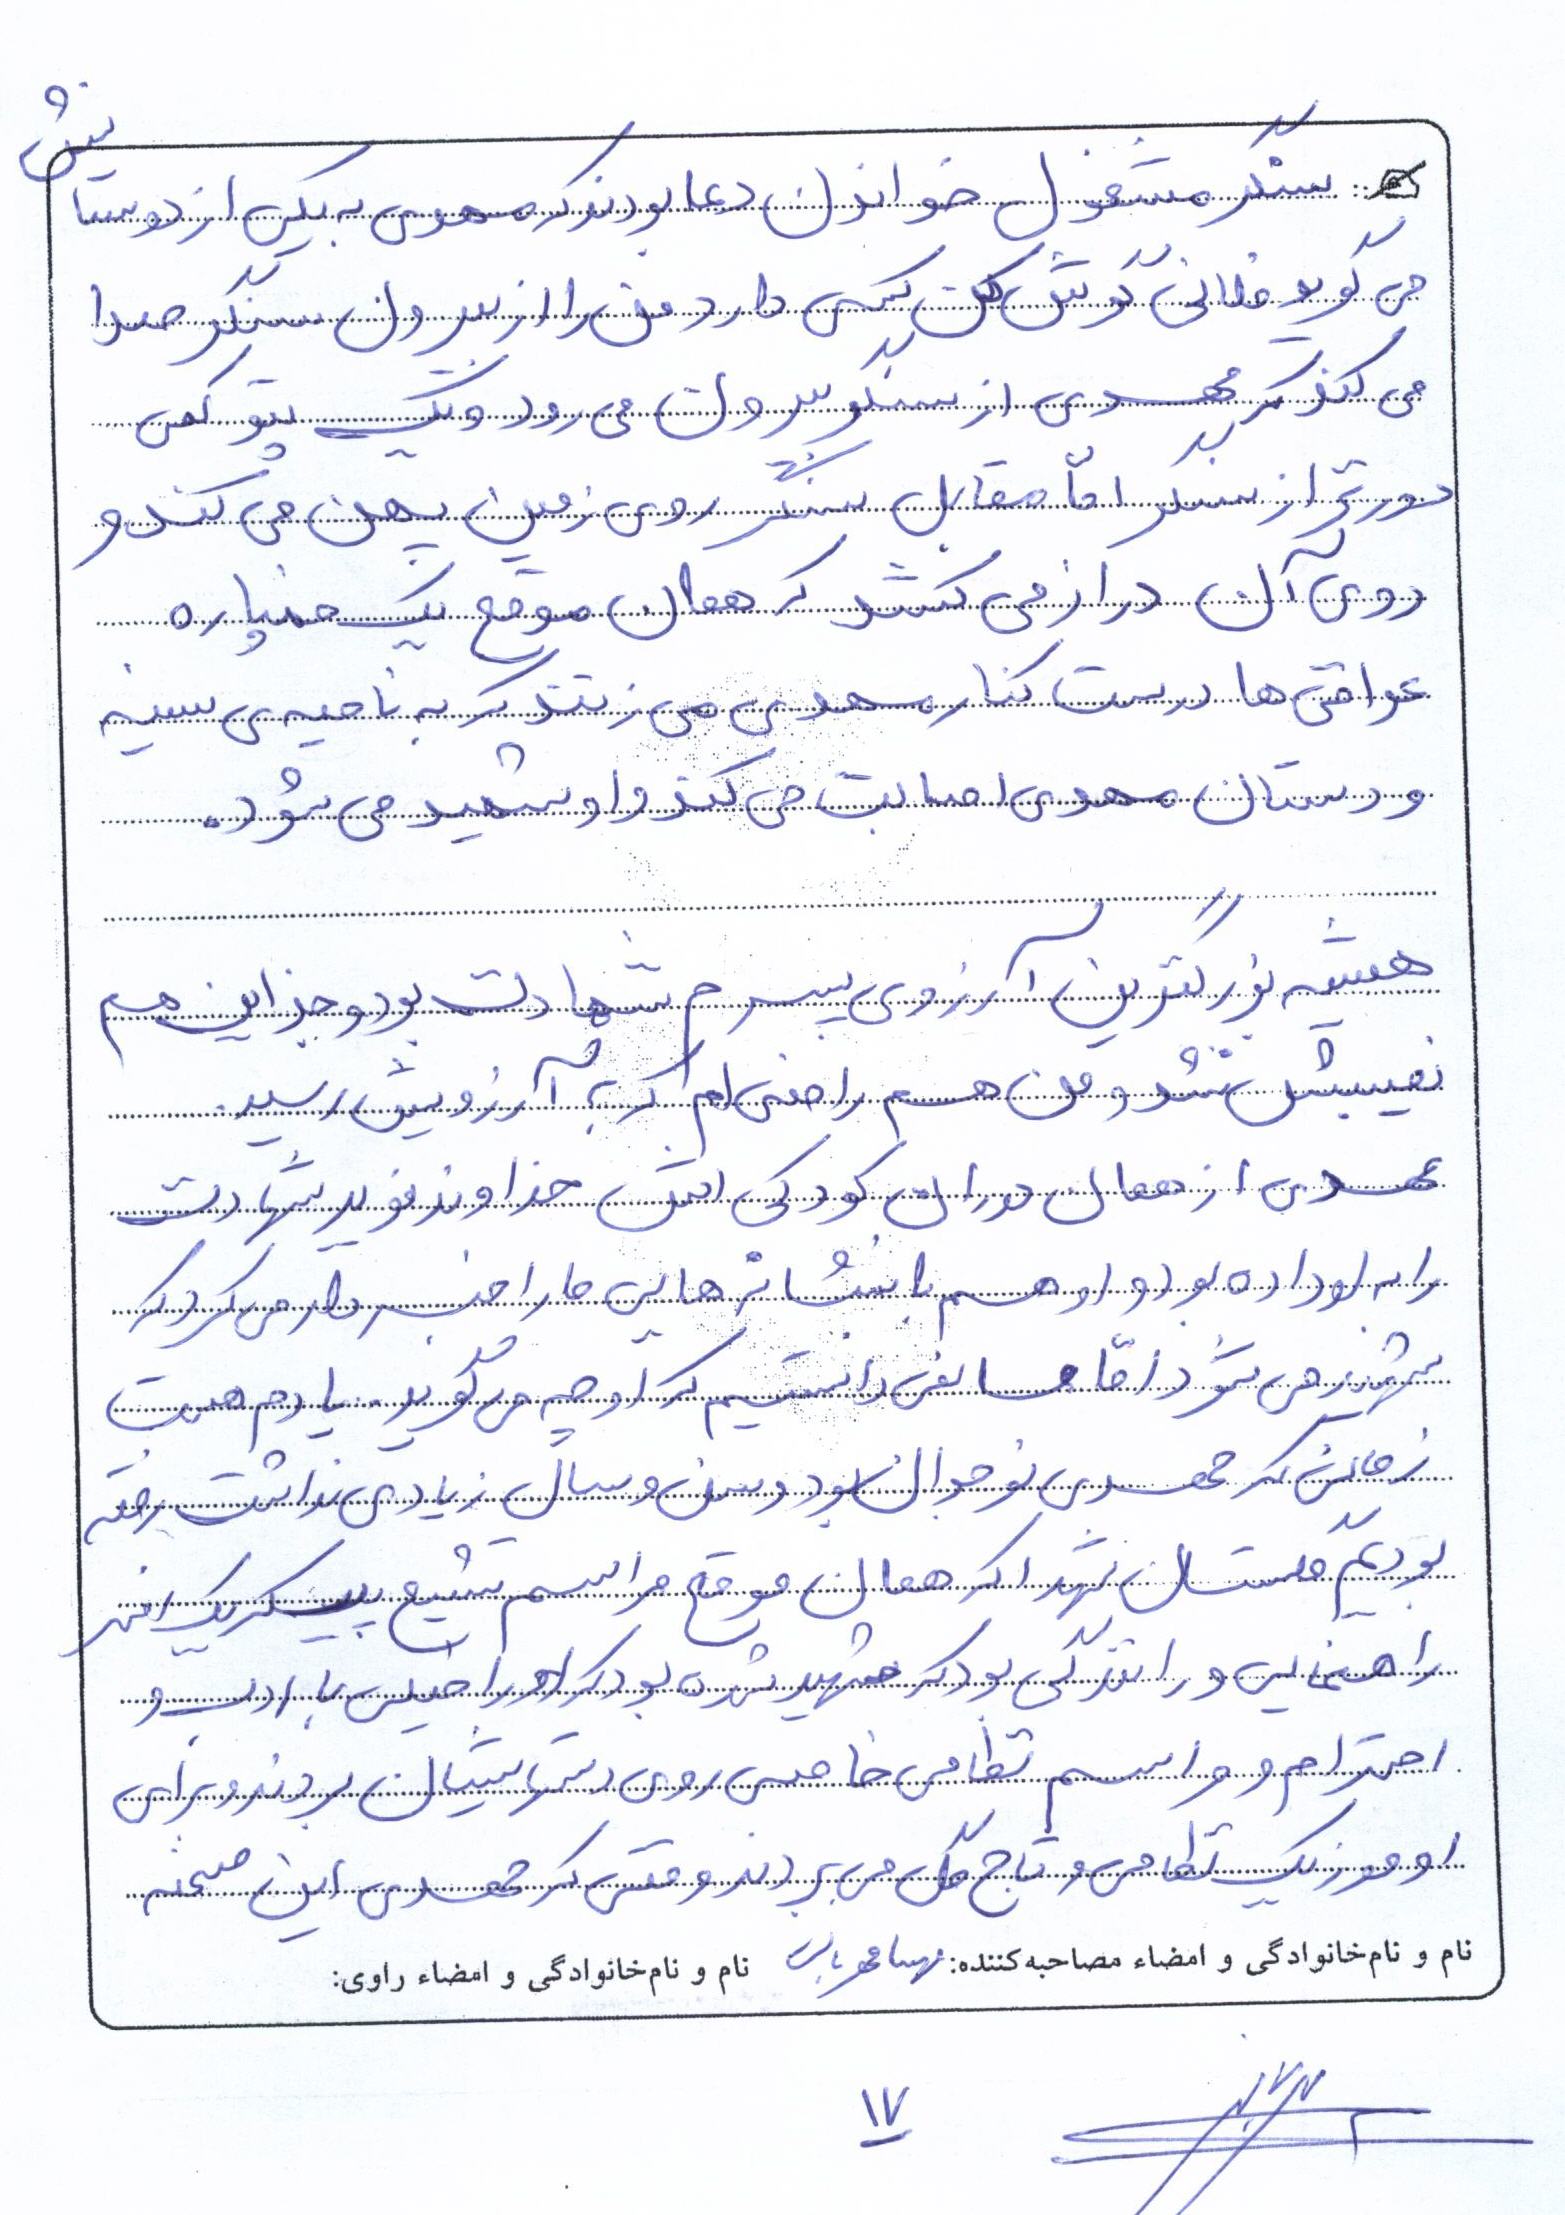 سنگر مشغول خواندن دعا بودند که مهدی به یکی از دوستانش
می گوید فلانی گوش کن کسی دارد من را از بیرون سنگر صدا
می کند که مهدی از سنگر بیرون می رود و یک پتو کمی
دورتر از سنگر امّا مقابل سنگر روی زمین پهن می کند و
روی آن دراز می کشد که همان موقع یک خمپاره
عراقی ها درست کنار مهدی می زنند که به ناحیه ی سینه
و دستان مهدی اصابت می کند و او شهید می شود.
همیشه بزرگترین آرزوی پسرم شهادت بود و جز این هم
نصیبش نشد و من هم راضی ام که به آرزویش رسید.
مهدی از همان دوران کودکی اش خداوند نوید شهادت
را به او داده بود و او هم با نشانه هایی ما را خبردار می کرد که
شهید می شود امّا ما نمی دانستیم که او چه می گوید. یادم هست
زمانی که مهدی نوجوان بود و سن و سال زیادی نداشت رفته
بودیم گلستان شهدا که همان موقع مراسم تشییع پیکر یک افسر
راهنمایی و رانندگی بود که شهید شده بود که او را خیلی با ادب و
احترام و مراسم نظامی خاصی روی دستانشان بردند و برای
او موزیک نظامی و تاج گل می بردند وقتی که مهدی این صحنه
نام و نام‌خانوادگی و امضاء مصاحبه‌کننده: نام و نام‌خانوادگی و امضاء راوی:
۱۷